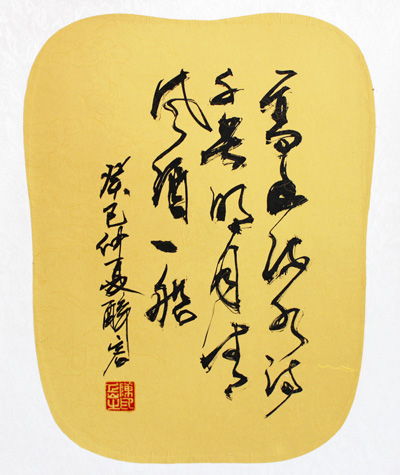 高山流水诗
千首明月清
风酒一船
癸巳仲夏